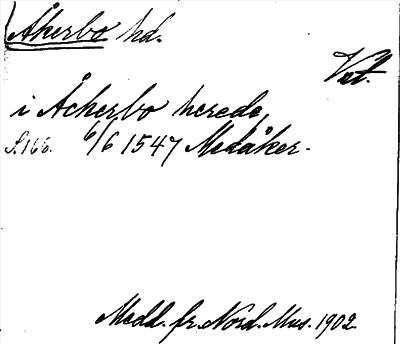 Åkerbo hd.
Vstm.
i Åcherbo herede
S. 166. 6/6 1547 Medåker.
Medd. fr. Nord. Mus. 1902